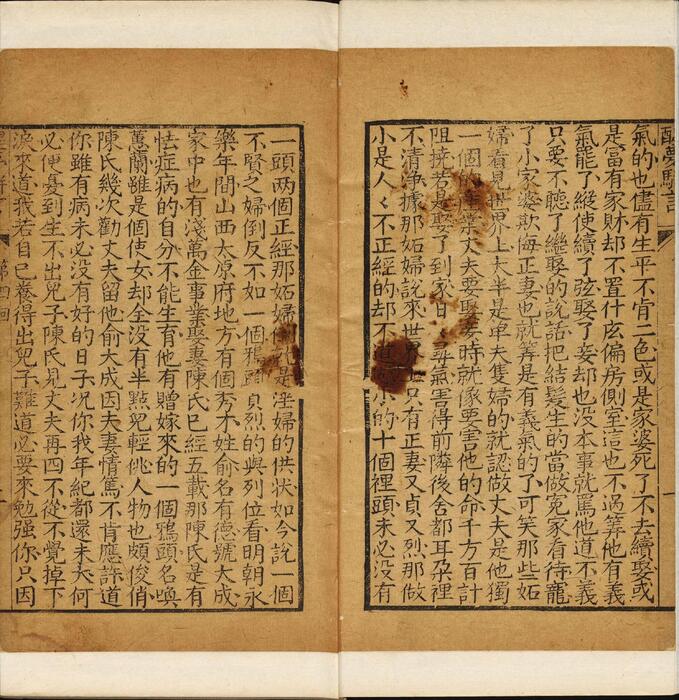 醒夢駢言
氣的也儘有生平不肯二色或是家婆死了不去續娶或
是富有家財却不置什庅偏房側室這也不過筭他有義
氣罷了縱使續了弦娶了妾却也没本事就罵他道不義
只要不聽了繼娶的説話把結髮生的當做冤家看待寵
了小家婆欺侮正妻也就筭是有義氣的了可笑那些妬
婦看見世界上大半是单夫隻婦的就認做丈夫是他獨
一個的 業丈夫要娶妾時就像要害他的命千方百計
阻撓若是娶了到家日〻尋氣害得前隣後舍都耳朶裡
不清淨據那妬婦說來世界 只有正妻又貞又烈那做
小是人〻不正經的却不 小的十個裡頭未必没有
一頭两個正經那妬婦 是淫婦的供状如今説一個
不賢之婦倒反不如一個鴉頭貞烈的與列位看明朝永
樂年間山西太原府地方有個秀才姓俞名有德號大成
家中也有淺萬金事業娶妻陳氏已經五載那陳氏是有
怯症病的自分不能生育他有贈嫁來的一個鴉頭名喚
蕙蘭雖是個使女却全没有半㸃兒輕佻人物也頗俊俏
陳氏幾次勸丈夫留他俞大成因夫妻情篤不肯應許道
你雖有病未必没有好的日子况你我年紀都還未大何
必便憂到生不出兒子陳氏見丈夫再四不從不覺掉下
淚來道我若自己養得出兒子難道必要來勉强你只因
第四回